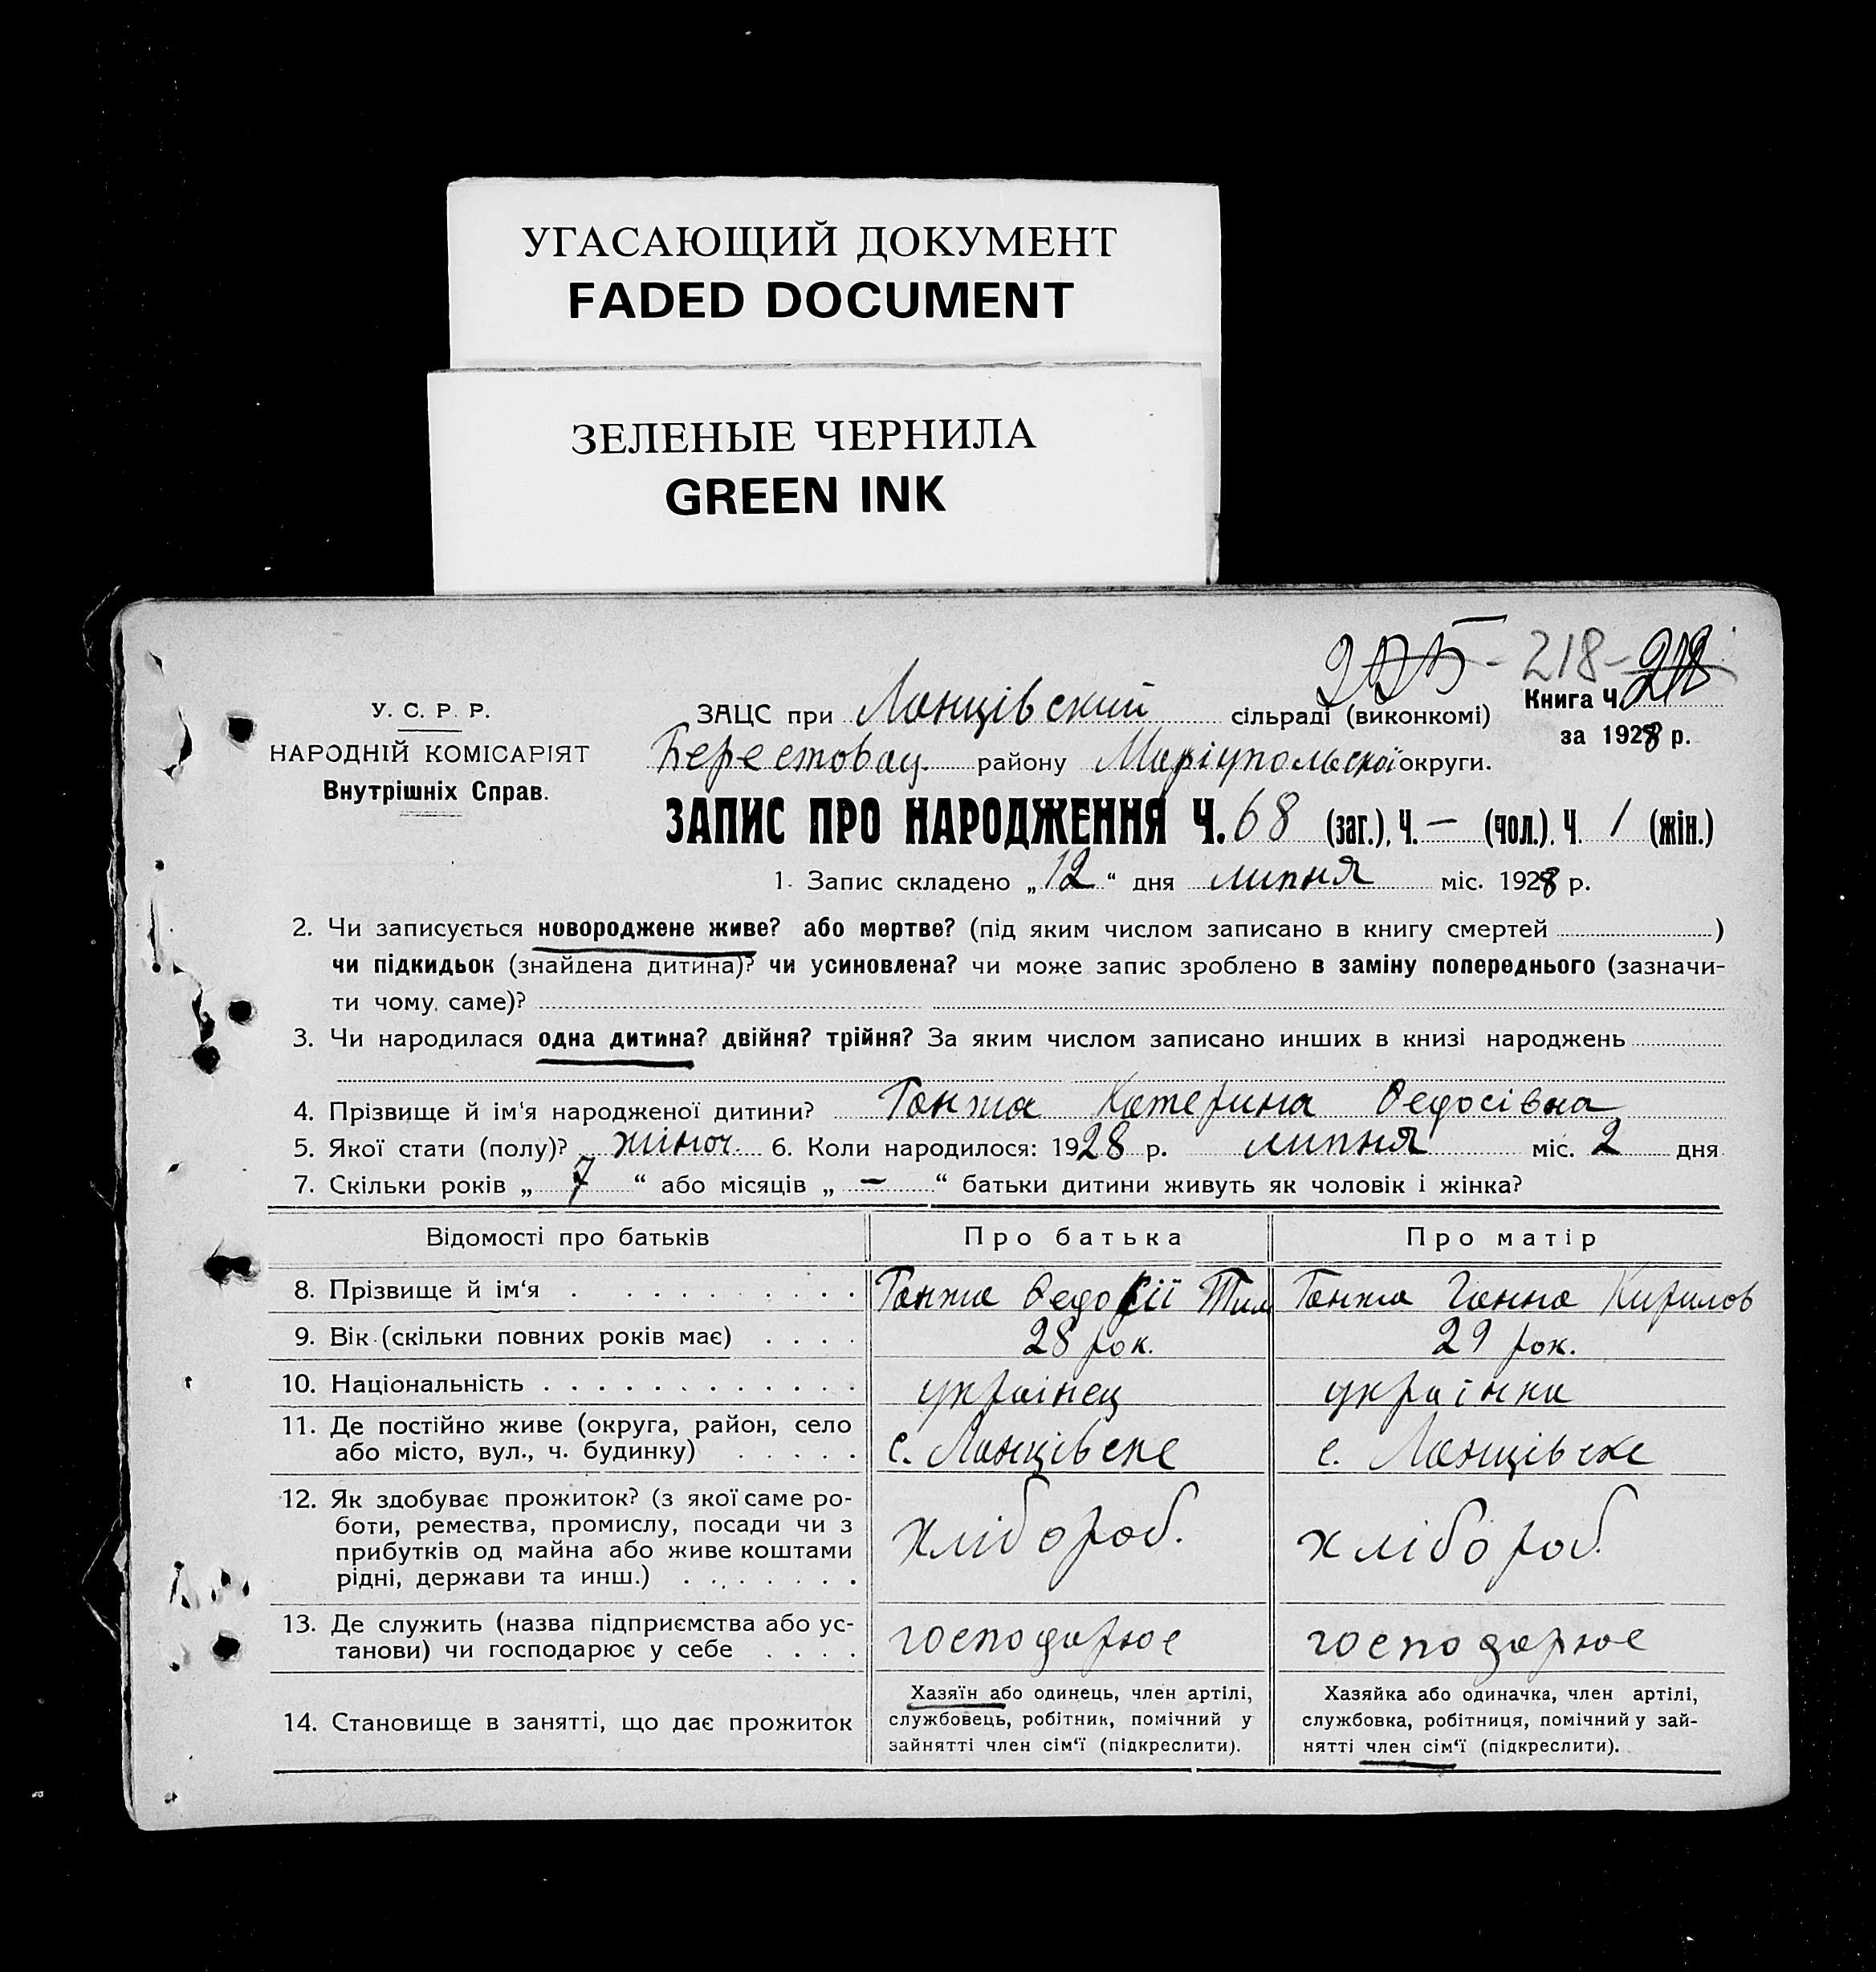 УГАСАЮЩИЙ ДОКУМЕНТ
FADED DOCUMENT
ЗЕЛЕНЫЕ ЧЕРНИЛА
GREEN INK
205 - 218 - 218
У. С. Р. Р.
НАРОДНІЙ КОМІСАРІЯТ
Внутрішніх Справ.
ЗАЦС при Ланцівский сільраді (виконкомі)
Берестовац. району Маріупольскої округи.
Книга Ч. 218
за 1928 р.
ЗАПИС ПРО НАРОДЖЕННЯ Ч. 68 (заг.), Ч. — (чол.). Ч. 1 (жін.)
1. Запис складено „12“ дня липня міс. 1928 р.
2. Чи записується новороджене живе? або мертве? (під яким числом записано в книгу смертей )
чи підкидьок (знайдена дитина)? чи усиновлена? чи може запис зроблено в заміну попереднього (зазначи-
ти чому, саме)?
3. Чи народилася одна дитина? двійня? трійня? За яким числом записано инших в книзі народжень
4. Прізвище й ім'я народженої дитини? Ганжа Катерина Федосівна
5. Якої стати (полу)? жіноч. 6. Коли народилося: 1928 р. липня міс. 2 дня
7. Скільки років „ 7 “ або місяців „ — “ батьки дитини живуть як чоловік і жінка?
Відомості про батьків Про батька Про матір
8. Прізвище й ім'я Ганжа Федосії Тим Ганжа Ганна Кирилов
9. Вік (скільки повних років має) 28 рок. 29 рок.
10. Національність українец українка
11. Де постійно живе (округа, район, село
або місто, вул., ч. будинку) с. Ланцівске с. Ланцівске
12. Як здобуває прожиток? (з якої саме ро-
боти, ремества, промислу, посади чи з
прибутків од майна або живе коштами
рідні, держави та инш.) хлібороб. хлібороб.
13. Де служить (назва підприємства або ус-
танови) чи господарює у себе господарює господарює
14. Становище в занятті, що дає прожиток
Хазяїн або одинець, член артілі,
службовець, робітник, помічний у
зайнятті член сім'ї (підкреслити).
Хазяйка або одиначка, член артілі,
службовка, робітниця, помічний у зай-
нятті член сім'ї (підкреслити).